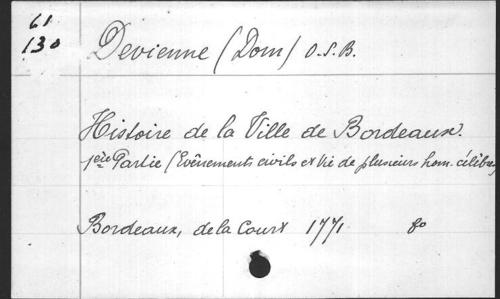 61
130
Devienne (Dom) O.S.B.
Histoire de la Ville de Bordeaux.
1ère Partie (Evênements civils et Vie de plusieurs hom. célèbres
Bordeaux, de la Court 1771 fo